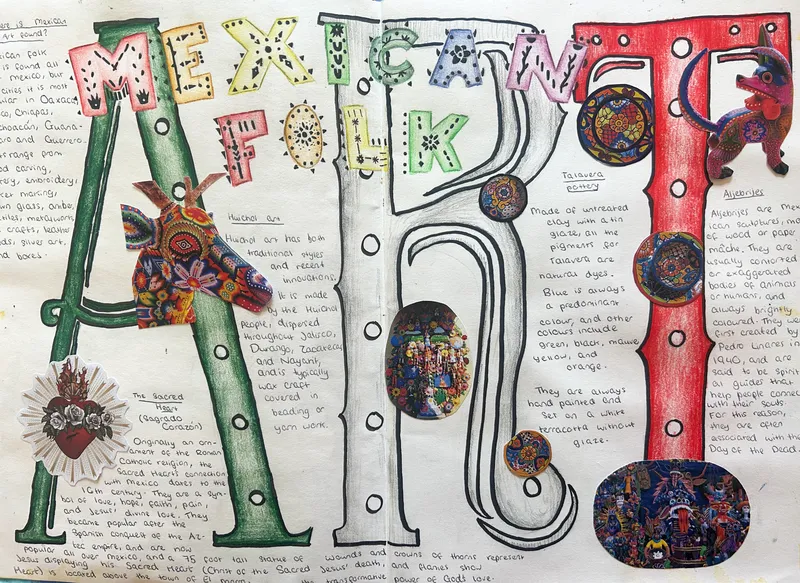 MEXICAN
FOLK
ART
ere is Mexican
Art found?
ican folk
is found all
mexico, but
cities it is most
ular in Oaxaca,
co, Chiapas,
choacán, Guana-
ro and Guerrero.
s range from
od carving,
ery, embroidery,
ket making,
wn glass,
tiles, metalwork,
crafts, leather
ds, silver art,
nd boxes.
Huichol art
Huichol art has both
traditional styles
and recent
innovations.
It is made
by the Huichol
people, dispersed
throughout Jalisco,
Durango, Zacatecas
and Nayarit,
and is typically
wax craft
covered in
beading or
yarn work.
The Sacred
Heart
(Sagrado
Corazón)
Originally an orn-
ament of the Roman
Catholic religion, the
Sacred Heart's connection
with Mexico dates to the
16th century. They are a sym-
bol of love, hope, faith, pain,
and Jesus' divine love. They
became popular after the
Spanish conquest of the Az-
tec empire, and are now
popular all over Mexico, and a 75 foot tall statue of
Jesus displaying his Sacred Heart (Christ of the Sacred
Heart) is located above the town of El
wounds and crowns of thorns represent
Jesus' death, and flames show
the transformative power of God's love.
Talavera
pottery
Made of untreated
clay with a tin
glaze, all the
pigments for
Talavera are
natural dyes.
Blue is always
a predominant
colour, and other
colours include
green, black, mauve
yellow, and
orange.
They are always
hand painted and
set on a white
terracotta without
glaze.
Alebrijes
Alebrijes are Mex
ican sculptures, ma
of wood or paper
mâche. They are
usually contorted
or exaggerated
bodies of animals
or humans, and
always brightly
coloured. They wer
first created by
Pedro Linares in
1940, and are
said to be spirit
al guides that
help people connec
with their souls.
For this reason,
they are often
associated with the
Day of the Dead.